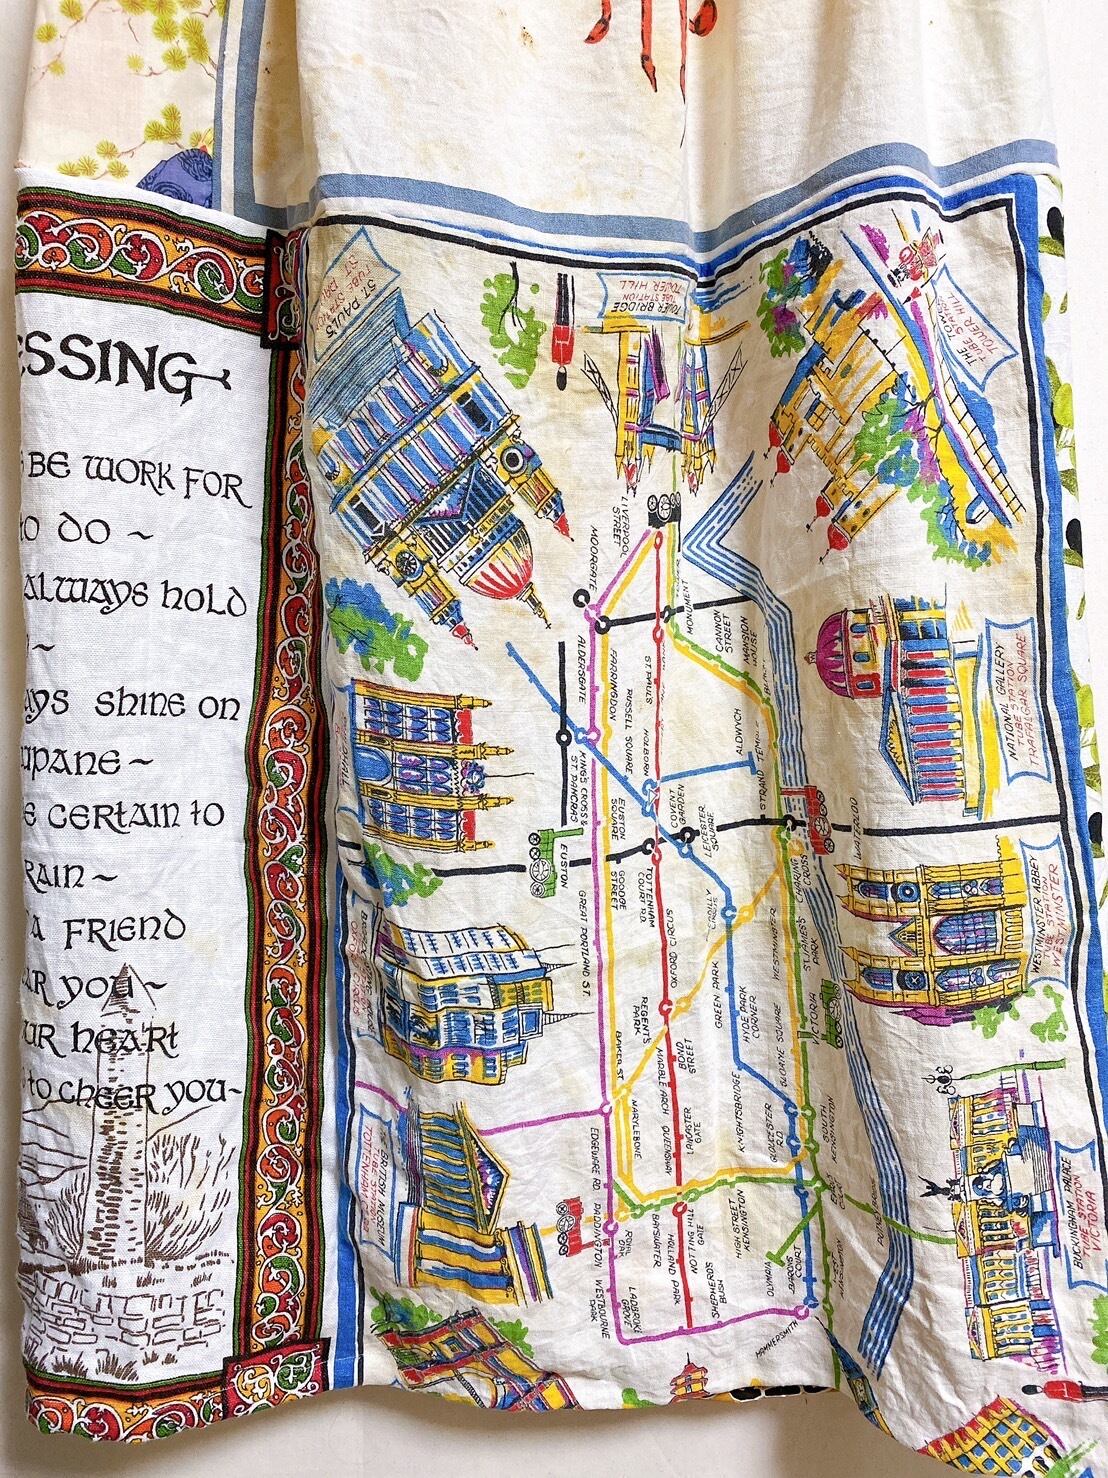 ESSING
BE WORK FOR
TO DO ~
ALWAYS HOLD
~
AYS SHINE ON
WPANE ~
E CERTAIN TO
RAIN ~
A FRIEND
AR YOU ~
UR HEART
TO CHEER YOU ~
ST. PAUL'S
TUBE STATION
ST. PAUL'S
TOWER BRIDGE
TUBE STATION
TOWER HILL
THE TOWER
TUBE STATION
TOWER HILL
NATIONAL GALLERY
TUBE STATION
TRAFALGAR SQUARE
WESTMINSTER ABBEY
TUBE STATION
WESTMINSTER
BUCKINGHAM PALACE
TUBE STATION
VICTORIA
BRITISH MUSEUM
TUBE STATION
TOTTENHAM
LIVERPOOL
STREET
MOORGATE
MONUMENT
CANNON
STREET
MANSION
HOUSE
ALDERSGATE
FARRINGDON
ST. PAULS
RUSSELL SQUARE
HOLBORN
ALDWYCH
TEMPLE
STRAND
KING'S CROSS &
ST. PANCRAS
EUSTON
SQUARE
COVENT
GARDEN
LEICESTER
SQUARE
WATERLOO
CHARING
CROSS
EUSTON
GOODGE
STREET
TOTTENHAM
COURT RD.
GREAT PORTLAND ST.
OXFORD CIRCUS
WESTMINSTER
ST. JAMES'S
PARK
GREEN PARK
HYDE PARK
CORNER
VICTORIA
REGENT'S
PARK
BOND
STREET
BAKER ST
MARBLE ARCH
SLOANE SQUARE
KNIGHTSBRIDGE
MARYLEBONE
LANCASTER
GATE
QUEENSWAY
GLOUCESTER
RD.
SOUTH
KENSINGTON
EDGEWARE RD
PADDINGTON
ROYAL
OAK
BAYSWATER
NOTTING HILL
GATE
HIGH STREET
KENSINGTON
HOLLAND PARK
SHEPHERD'S
BUSH
OLYMPIA
BARONS
COURT
WESTBOURNE
PARK
LADBROKE
GROVE
HAMMERSMITH